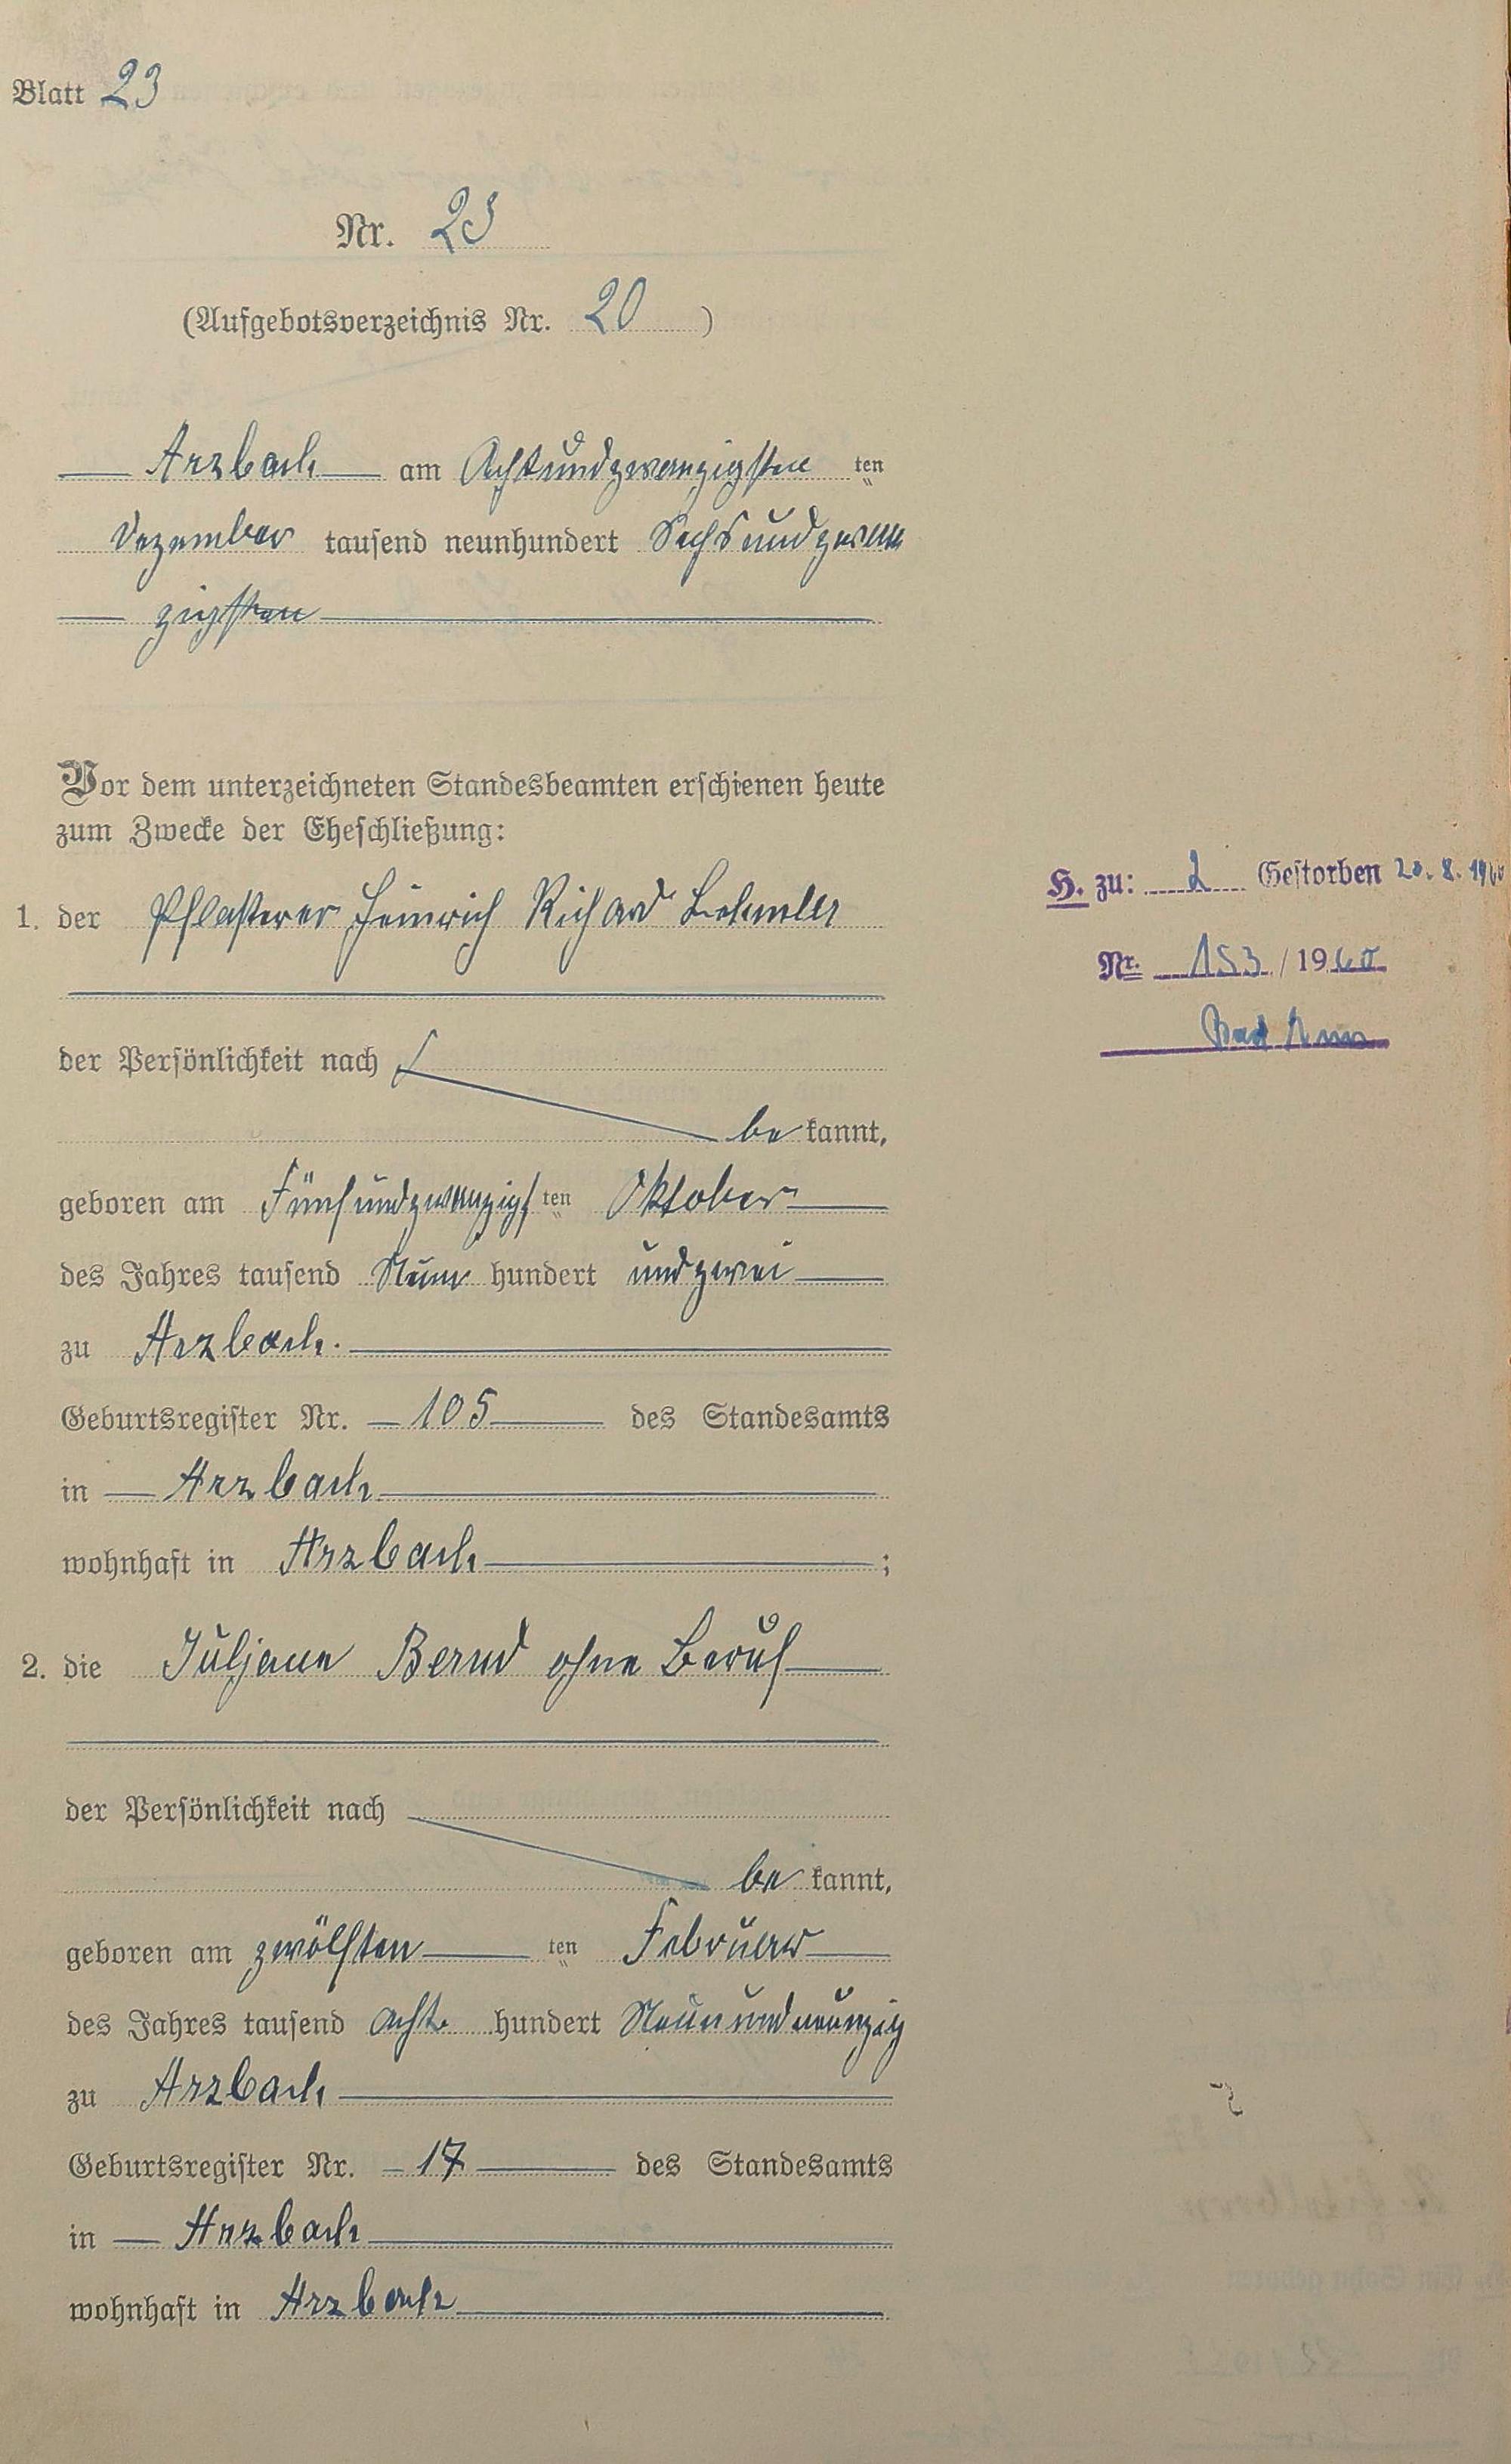 Blatt 23
Nr. 23
(Aufgebotsverzeichnis Nr. 20 )
Arzbach am Achtundzwanzigsten ten
Dezember tausend neunhundert Sechsundzwan
zigsten
Vor dem unterzeichneten Standesbeamten erschienen heute
zum Zwecke der Eheschließung:
1. der Pflasterer Heinrich Richard
der Persönlichkeit nach
be kannt,
geboren am Fünfundzwanzigs ten Oktober
des Jahres tausend Neun hundert und zwei
zu Arzbach.
Geburtsregister Nr. 105 des Standesamts
in Arzbach
wohnhaft in Arzbach ;
2. die Juljane Bernd ohne Beruf
der Persönlichkeit nach
be kannt,
geboren am zwölften ten Februar
des Jahres tausend acht hundert Neunundneunzig
zu Arzbach
Geburtsregister Nr. 17 des Standesamts
in Arzbach
wohnhaft in Arzbach
H. zu: 2 Gestorben 20. 8. 1960
Nr. 153 / 1960
Bad Ems